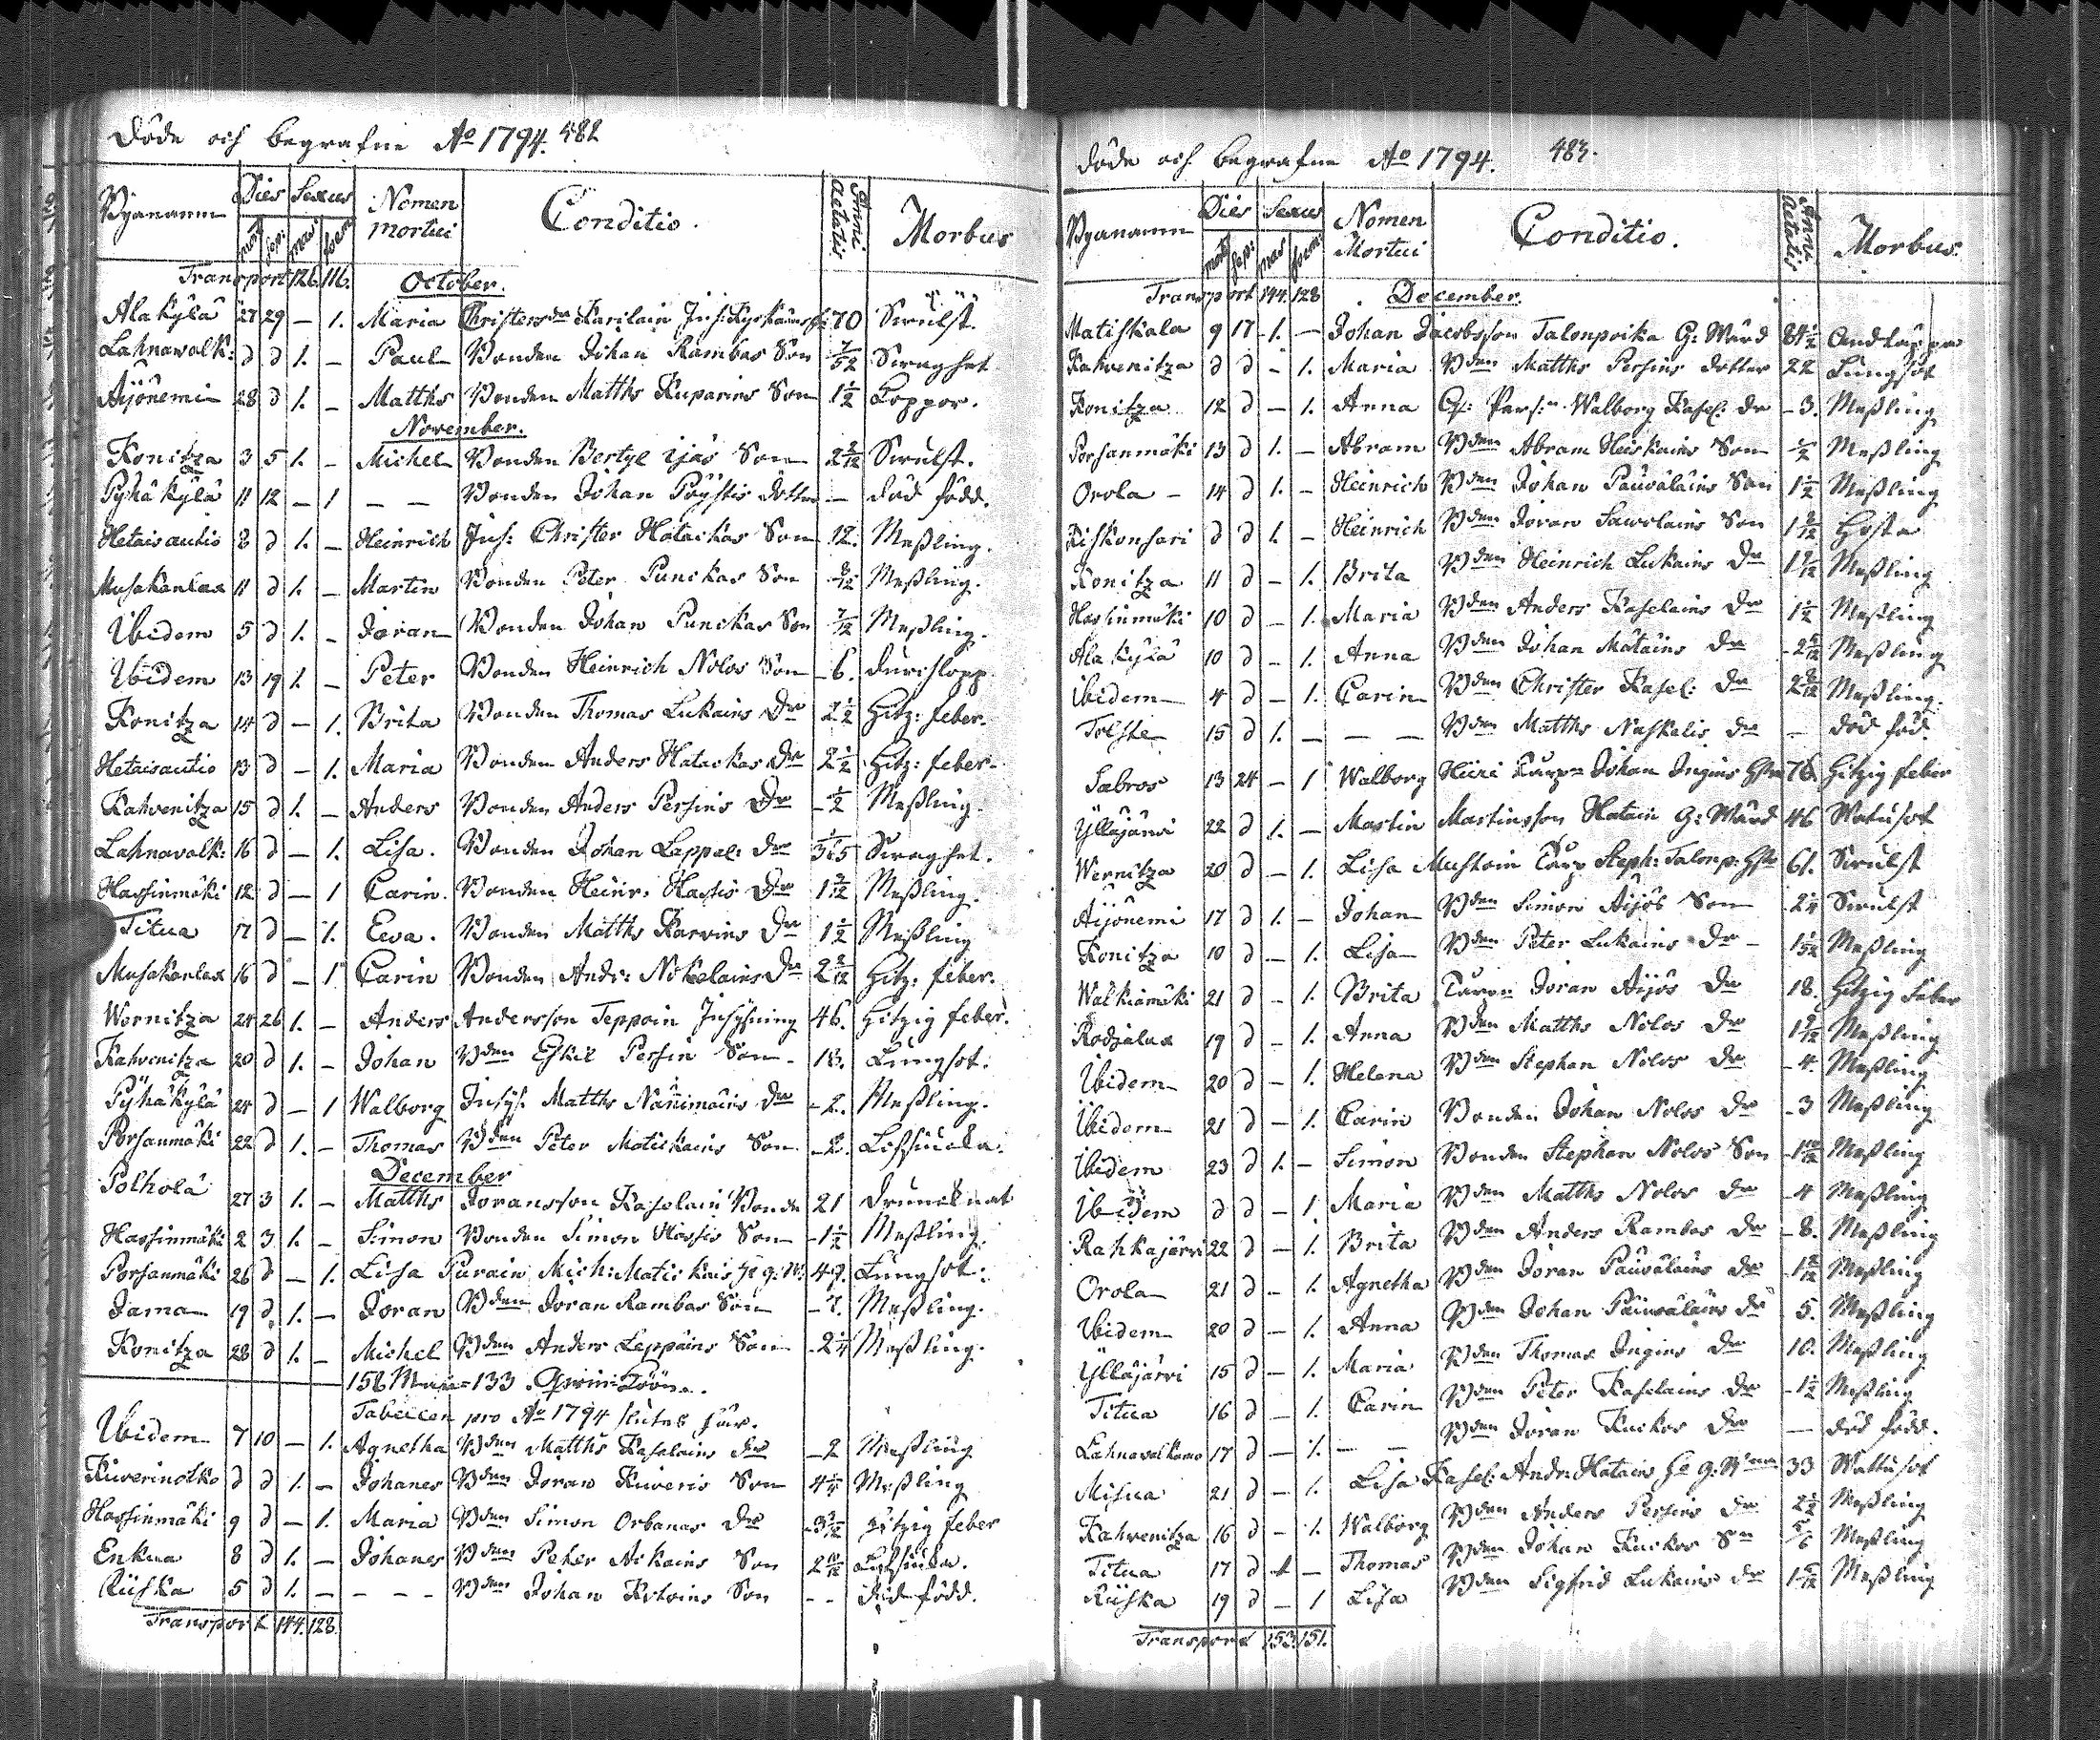 Döde och begrafne Aº 1794. 482
Byanamn Dies Sexus Nomen mortui Conditio. Anni Aetatis Morbus
mort: sep: mas foem
Transport 126. 116. October.
Alakylä 27 29 – 1. Maria Christersdr Karilain Inh: Kyrkäins 70 Swulst.
Lahnawalk: d d 1. – Paul Bonden Johan Rambas Son 7/52 Swaghet
Äijönemi 28 d 1. – Matths Bonden Matths Kuparins Son 1½ Koppor.
November.
Konitza 3 5 1. – Michel Bonden Bertyl Ijäs Son 2 2/12 Swulst.
Pyhäkylä 11 12 – 1 – – Bonden Johan Pöystis dotter – död född.
Hetaisautio 8 d 1. – Heinrich Inh: Christer Hatackas Son 12. Meßling.
Musakanlax 11 d 1. – Martin Bonden Peter Punckas Son 8/12 Meßling.
Ibidem 5 d 1. – Joran Bonden Johan Punckas Son 7/12 Meßling.
Ibidem 13 19 1. – Peter Bonden Heinrich Nolos Son – 6. durchlopp
Konitza 14 d – 1. Brita Bonden Thomas Lukains Dr 2½ Hitz: feber.
Hetaisautio 13 d – 1. Maria Bonden Anders Hatackas Dr 2½ Hitz: feber.
Kahvenitza 15 d 1. – Anders Bonden Anders Persins Dr – ½ Meßling.
Lahnavalk: 16 d – 1. Lisa. Bonden Johan Lappal: Dr Swaghet.
Hassinmäki 12 d – 1 Carin. Bonden Heinr: Hassis Dr Meßling.
Titua 17 d – 1. Eeva. Bonden Matths Karvins Dr 1½ Meßling
Musakanlax 16 d – 1 Carin Bonden Andr: Nokelains Dr 2 2/12 Hitz: feber.
Wernitza 24 26 1. – Anders Andersson Teppoin Inhysning 46. Hitzig feber.
Kahvenitza 20 d 1. – Johan Bden Eskil Persin Son – 18. Lungsot.
Pyhäkylä 24 d – 1 Walborg Inhys. Matths Nännimäins Dr – 2. Meßling.
Porsanmäki 22 d 1. – Thomas Bden Peter Matickains Son – 2.
December
Polhola 27 3 1. – Matths Joransson Kaselain Bonde 21 druncknat
Hassinmäki 2 3 1. – Simon Bonden Simon Hassis Son – 1½ Meßling.
Porsanmäki 26 d – 1. Lisa Purain Mich: Matickais 49. Lungsot.
Jama 19 d. 1. – Joran Bden Joran Rambas Son – 7. Meßling.
Konitza 28 d 1. – Michel Bden Anders Leppäins Son – 2¼ Meßling.
Tabellen pro Aº 1794 slutes här.
Ibidem 7 10 – 1. Agnetha Bden Matths Kaselains dr – 2 Meßling
Kiuverinotko d d 1. – Johanes Bden Joran Kiuveris Son 4¼ Meßling
Hassinmäki 9 d – 1. Maria Bden Simon Orbanas Dr hitzig feber
Enkua 8 d 1. – Johanes Bden Peter Ackains Son
Riiska 5 d 1. – – – – Bden Johan Kitoins Son – – död född.
Transport 144. 128.
Döde och begrafne Aº 1794. 483.
Byanamn Dies Sexus Nomen Mortui Conditio. Anni Aetatis Morbus.
mort: sep: mas foem
Transport 144. 128. December.
Matiskala 9 17 1. – Johan Jacobsson Talonpoika G: Mård 84½ Andtäppa
Kahvenitza d d – 1. Maria Bden Matths Persins dotter 22 Lungsot
Konitza 12 d – 1. Anna Walborg Kasel: dr – 3. Meßling
Porsanmäki 13 d 1. – Abram Bden Abram Heiskains Son – ½ Meßling
Orola – 14 d 1. – Heinrich Bden Johan Päiväläins Son 1½ Meßling
Kiskonsari d d 1. – Heinrich Bden Joran Sawolains Son Hosta
Konitza 11 d – 1. Brita Bden Heinrich Lukains Dr Meßling
Hassinmäki 10 d – 1. Maria Bden Anders Kaselains Dr 1½ Meßling
Alakylä 10 d – 1. Anna Bden Johan Mätäins Dr Meßling
Ibidem 4 d – 1. Carin Bden Christer Kasel: Dr Meßling.
Tolste 15 d 1. – – – Bden Matths Naskalis dr – död föd.
Sabros 13 24 – 1 Walborg Johan Ingins 76. Hitzig feber
Ylläjärvi 22 d 1. – Martin Martinsson Hatain G: Mård 46 Watusot
Wernitza 20 d – 1. Lisa Mustoin Steph: Talonp: 61. Swulst
Äijönemi 17 d 1. – Johan Bden Simon Äijös Son 2¼ Swulst
Konitza 10 d – 1. Lisa Bden Peter Lukains Dr – Meßling
Walkiamäki 21 d – 1. Brita Joran Äijös Dr 18. Hitzig feber
Rodjalax 19 d – 1. Anna Bden Matths Nolos Dr Meßling
Ibidem 20 d – 1. Helena Bden Stephan Nolos Dr – 4. Meßling
Ibidem 21 d – 1. Carin Bonden Johan Nolos Dr – 3 Meßling
Ibidem 23 d 1. – Simon Bonden Stephan Nolos Son Meßling
Ibidem d d – 1 Maria Bden Matths Nolos dr – 4 Meßling
Rahkajärvi 22 d – 1. Brita Bden Anders Rambas Dr – 8. Meßling
Orola 21 d – 1. Agnetha Bden Joran Päiväläins dr Meßling
Ibidem 20 d – 1. Anna Bden Johan Päiväläins dr 5. Meßling
Ylläjärvi 15 d – 1. Maria Bden Thomas Ingins dr 10. Meßling
Titua 16 d – 1. Carin Bden Peter Kaselains dr – 1½ Meßling
Lahnavalkama 17 d – 1. – – Bden Joran Kuckos Dr – död född.
Misua 21 d – 1. Lisa Kasel: Andr: Hatains 33 Wattusot
Kahvenitza 16 d – 1. Walborg Bden Anders Persins dr 2½ Meßling
Titua 17 d 1 – Thomas Bden Johan Kuckos Sn Meßling
Riiska 19 d – 1 Lisa Bden Sigfrid Lukains dr Meßling
Transport 153. 151.